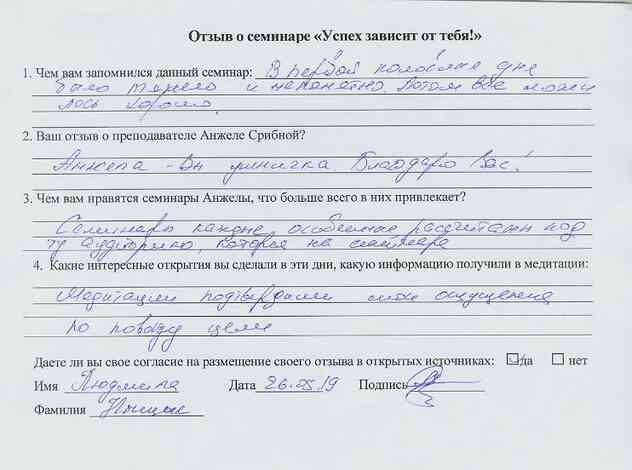 Отзыв о семинаре «Успех зависит от тебя!»
1. Чем вам запомнился данный семинар: В первой половине дня
было тяжело и непонятно. Потом все
лось хорошо.
2. Ваш отзыв о преподавателе Анжеле Срибной?
Анжела - Вы умничка Благодарю Вас!
3. Чем вам нравятся семинары Анжелы, что больше всего в них привлекает?
Семинары каждые особенные рассчитаны под
ту аудиторию, которая на семинаре
4. Какие интересные открытия вы сделали в эти дни, какую информацию получили в медитации:
Медитации подтвердили мои ощущения
по поводу цели
Даете ли вы свое согласие на размещение своего отзыва в открытых источниках: да нет
Имя Людмила Дата 26.05.19 Подпись
Фамилия